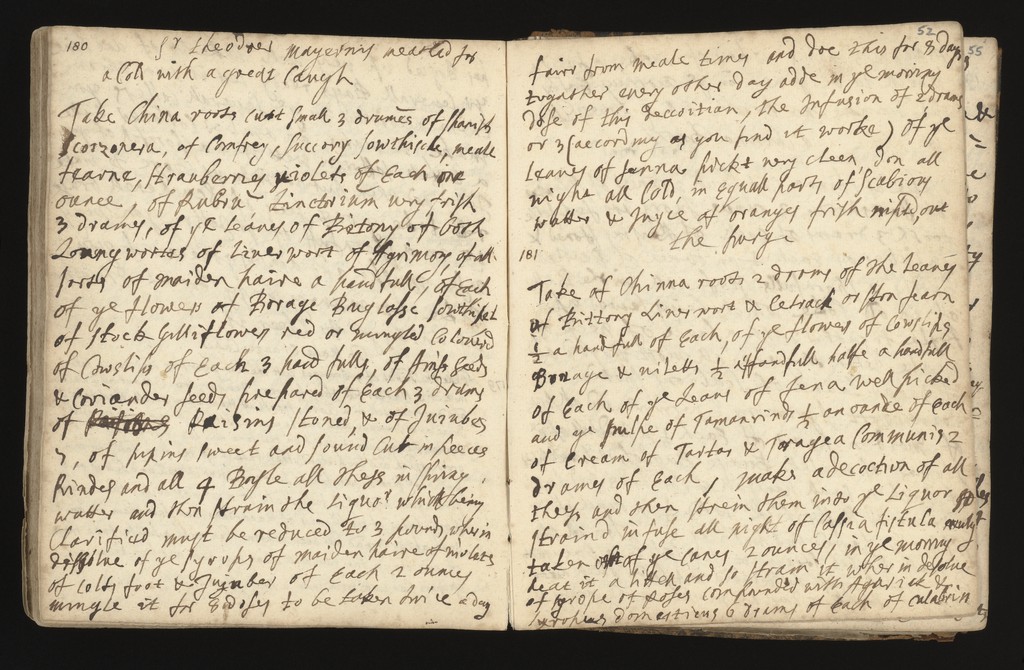 180
Sr theodoer mayernis
a Cold with a great Caugh
Take China roots cutt small 3 drumes of spanish
scorzonera, of Comfrey, succory sowthisele, meale
fearne, strauberries violets of Each one
ounce, of Rubia tinctorium very frish
3 drames, of ye Leaves of Bittony of both
Loungwortes of Liverwort of Agrimony, of all
sorts of maiden haire a handfull, of Each
of ye flowers of Borage Buglosse
of stock Gilliflower red or mingled Colored
of Cowslips of Each 3 hand fulls, of Aniss seeds
& Coriander seeds prepared of Each 3 drums
of Raisins stoned & of Jujubes
of pipins sweet and sound Cut in peeces
Rindes and all 4 Boyle all thess in spring
watter and then straine the Liquor which being
Clarified must be reduced to 3 pound, wherin
dissolve of ye syrops of maiden haire of violets
of Colts foot & Jujuber of Each 2 ounces
mingle it for doses to be taken twice a day
52
55
fairr from meale times and doe this for 8 days
togather every other day adde in ye morning
dose of this decoction, the Infusion of 2 drams
or 3 (according as you find it worke) of ye
Leaves of senna pickt very cleen, don all
night all Cold, in equall parts of scabious
watter & Juyce of oranges frish
the purge
181
Take of Chinna roots 2 drams of the Leaves
of Bittony Liverwort & Cetrack or
½ a handfull of Each, of ye flowers of Cowslips
Borrage & viletts ½ a handfull halfe a handfull
of Each of ye Leavs of sena well picked
and ye pulpe of Tamarinds ½ an ounce of Each
of Cream of Tartar & Tragea Communis 2
drames of Each, make a decoction of all
thess and then strein them into ye Liquor so
straind infuse all night of Cassia fistula newly
taken out of ye canes 2 ounces, in ye morning
heat it a litell and so strain it wherin desolve
of sirope of Roses compounded with Agarick
domesticus 6 drams of Each of